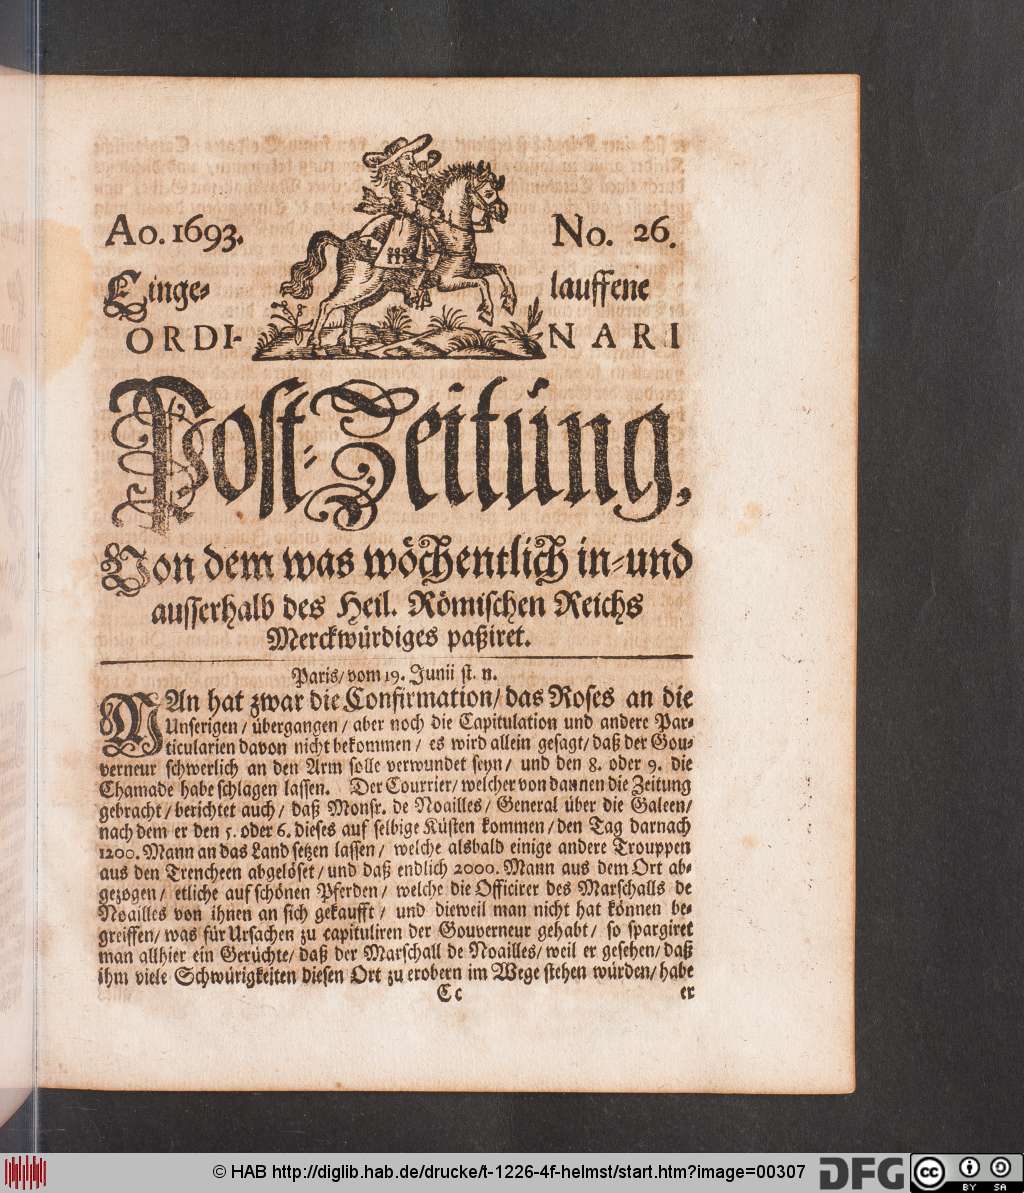 Ao. 1693. No. 26.
Einge- lauffene
ORDI- NARI
Post-Zeitung,
Von dem was wöchentlich in- und
ausserhalb des Heil. Römischen Reichs
Merckwürdiges paßiret.
Paris / vom 19. Junii st. n.
MAn hat zwar die Confirmation / das Roses an die
Unserigen / übergangen / aber noch die Capitulation und andere Par-
ticularien davon nicht bekommen / es wird allein gesagt / daß der Gou-
verneur schwerlich an den Arm solle verwundet seyn / und den 8. oder 9. die
Chamade habe schlagen lassen. Der Courrier / welcher von dannen die Zeitung
gebracht / berichtet auch / daß Monsr. de Noailles / General über die Galeen /
nach dem er den 5. oder 6. dieses auf selbige Küsten kommen / den Tag darnach
1200. Mann an das Land setzen lassen / welche alsbald einige andere Trouppen
aus den Trencheen abgelöset / und daß endlich 2000. Mann aus dem Ort ab-
gezogen / etliche auf schönen Pferden / welche die Officirer des Marschalls de
Noailles von ihnen an sich gekaufft / und dieweil man nicht hat können be-
greiffen / was für Ursachen zu capituliren der Gouverneur gehabt / so spargiret
man allhier ein Gerüchte / daß der Marschall de Noailles / weil er gesehen / daß
ihm viele Schwürigkeiten diesen Ort zu erobern im Wege stehen würden / habe
Cc er
© HAB http://diglib.hab.de/drucke/t-1226-4f-helmst/start.htm?image=00307
DFG
cc BY SA